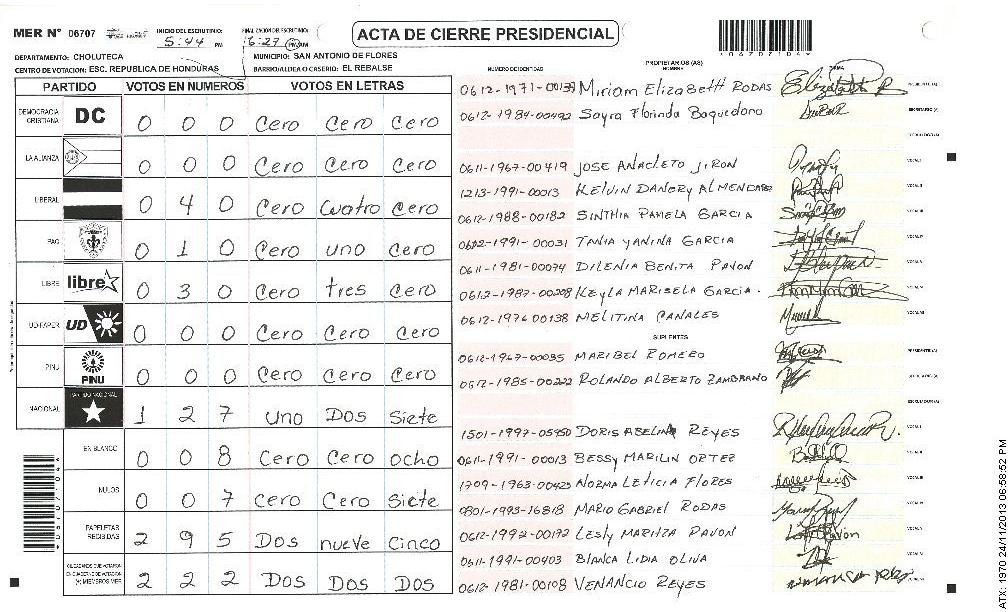 MER N° 06707
INICIO DEL ESCRUTINIO: 5:44 PM
FINALIZACION DEL ESCRUTINIO: 6:27 PM
ACTA DE CIERRE PRESIDENCIAL
*06707104*
DEPARTAMENTO: CHOLUTECA
MUNICIPIO: SAN ANTONIO DE FLORES
CENTRO DE VOTACION: ESC. REPUBLICA DE HONDURAS
BARRIO/ALDEA O CASERIO: EL REBALSE
PARTIDO VOTOS EN NUMEROS VOTOS EN LETRAS
DEMOCRACIA CRISTIANA DC 0 0 0 Cero Cero Cero
LA ALIANZA 0 0 0 Cero Cero Cero
LIBERAL 0 4 0 Cero Cuatro Cero
PAC 0 1 0 Cero uno Cero
LIBRE libre 0 3 0 Cero tres Cero
UD-FAPER UD 0 0 0 Cero Cero Cero
PINU PINU 0 0 0 Cero Cero Cero
NACIONAL PARTIDO NACIONAL 1 2 7 uno Dos Siete
EN BLANCO 0 0 8 Cero Cero ocho
NULOS 0 0 7 Cero Cero Siete
PAPELETAS RECIBIDAS 2 9 5 Dos nueve Cinco
CIUDADANOS QUE VOTARON EN CUADERNO DE VOTACION (+) MIEMBROS MER 2 2 2 Dos Dos Dos
NUMERO DE IDENTIDAD PROPIETARIOS (AS) NOMBRE FIRMA
0612-1971-00139 Miriam Elizabeth RODAS PRESIDENTE (A)
0612-1984-00492 Sayra Florinda Baquedano SECRETARIO (A)
0611-1967-00419 JOSE ANACLETO JIRON VOCAL I
1213-1991-00013 KELVIN DANERY ALMENDAREZ VOCAL II
0612-1988-00182 SINTHIA PAMELA GARCIA VOCAL III
0602-1991-00031 TANIA YANINA GARCIA VOCAL IV
0611-1981-00074 DILENIA BENITA PAVON VOCAL V
0612-1987-00208 KEYLA MARISELA GARCIA. VOCAL VI
0612-1976-00138 MELITINA CANALES VOCAL VII
SUPLENTES
0612-1967-00035 MARIBEL ROMERO PRESIDENTE (A)
0612-1985-00222 ROLANDO ALBERTO ZAMBRANO
ESCRUTADOR (A)
1501-1997-05450 DORIS ABELINA REYES VOCAL I
0611-1991-00013 BESSY MARILIN ORTEZ VOCAL II
1709-1963-00425 NORMA LETICIA FLORES VOCAL III
0801-1995-16818 MARIO GABRIEL RODAS VOCAL IV
0612-1992-00192 LESLY MARITZA PAVON VOCAL V
0611-1991-00403 BLANCA LIDIA OLIVA VOCAL VI
0612-1981-00108 VENANCIO REYES
ATX: 1970 24/11/2013 06:58:52 PM